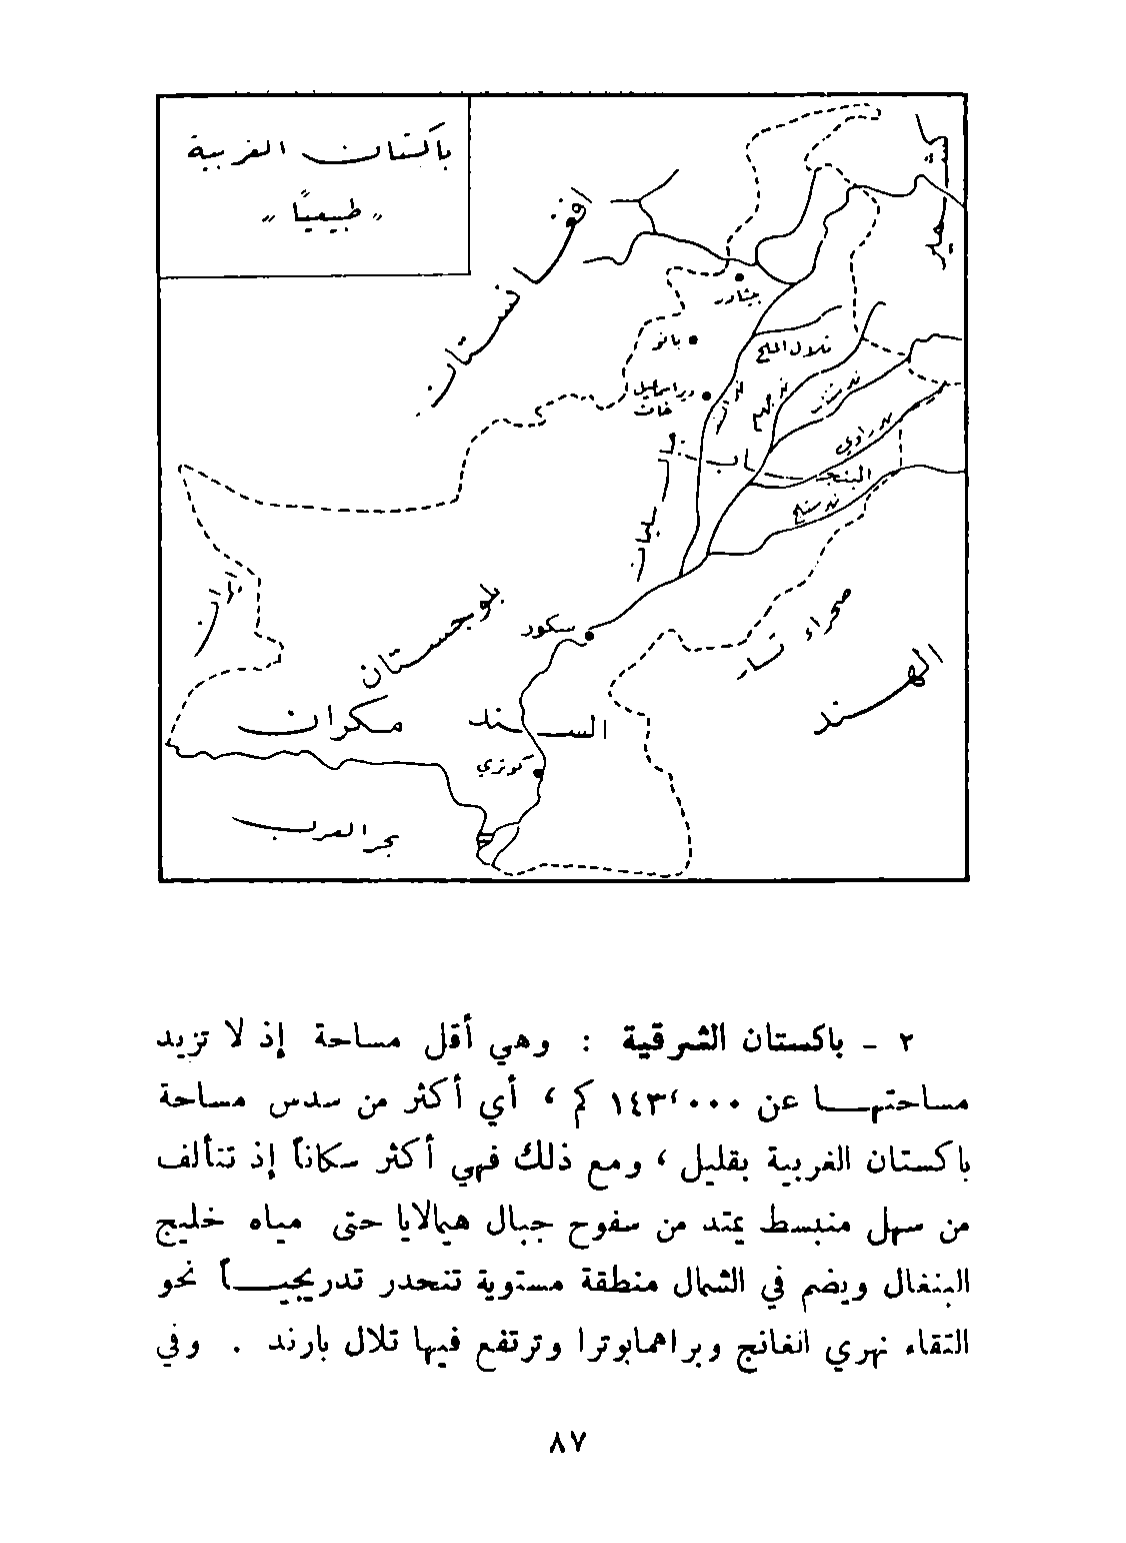 باكستان الغربية
« طبيعياً »
كشمير
افغانستان
بيشاور
بانو
تلال الملح
ديراسماعيل
خان
نهر جهلم
نهر راوي
البنجاب
نهر ستلج
جبال سليمان
ايران
بلوجستان
سكور
صحراء تسار
الهند
مكران
السند
كوتري
بحر العرب
٢ - باكستان الشرقية : وهي أقل مساحة إذ لا تزيد
مساحتهـا عن ١٤٣،٠٠٠ كم ، أي أكثر من سدس مساحة
باكستان الغربية بقليل ، ومع ذلك فهي أكثر سكاناً إذ تتألف
من سهل منبسط يمتد من سفوح جبال هيمالايا حتى مياه خليج
البنغال ويضم في الشمال منطقة مستوية تنحدر تدريجيـاً نحو
التقاء نهري الغانج وبراهمابوترا وترتفع فيها تلال بارند . وفي
٨٧